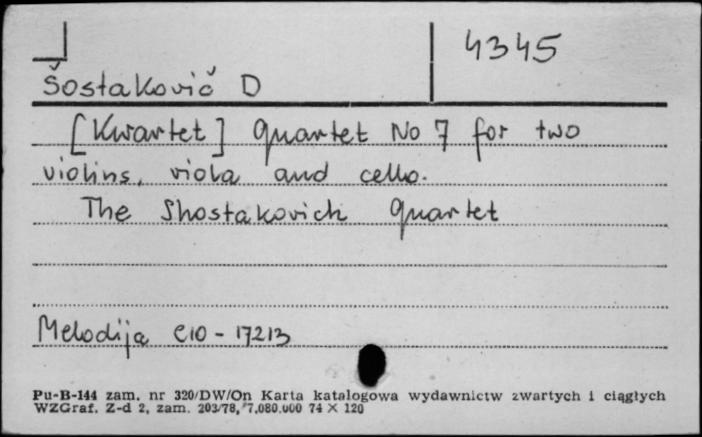 4345
Šostakovič D
[Kwartet] Quartet No 7 for two
violins, viola and cello.
The Shostakovich Quartet
Melodija C10-17213
Pu-B-144 zam. nr 320/DW/On Karta katalogowa wydawnictw zwartych i ciągłych
WZGraf. Z-d 2, zam. 203/78, 7.080.000 74 × 120